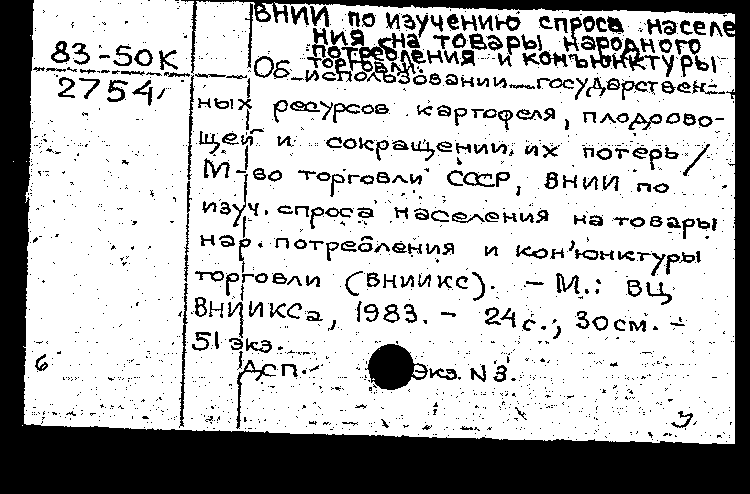 ВНИИ по изучению спроса населе
ния на товары народного
потребления и конъюнктуры
торговли.
83-50К
2754
Об использовании государствен-
ных ресурсов картофеля, плодоово-
щей и сокращении их потерь /
М-во торговли СССР, ВНИИ по
изуч. спроса населения на товары
нар. потребления и кон'юнктуры
торговли (ВНИИКС). - М.: ВЦ
ВНИИКСа, 1983. - 24 с.; 30 см. -
51 экз.
ДСП. Экз. N 3.
6